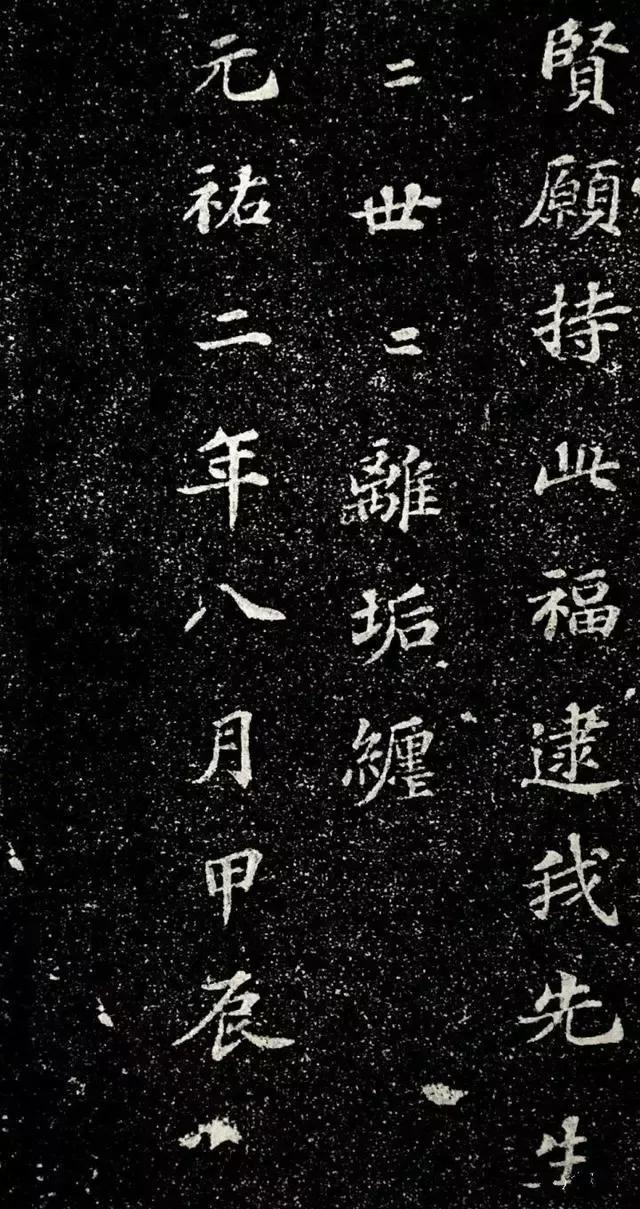 賢願持此福逮我先生
〻世〻離垢纏
元祐二年八月甲辰